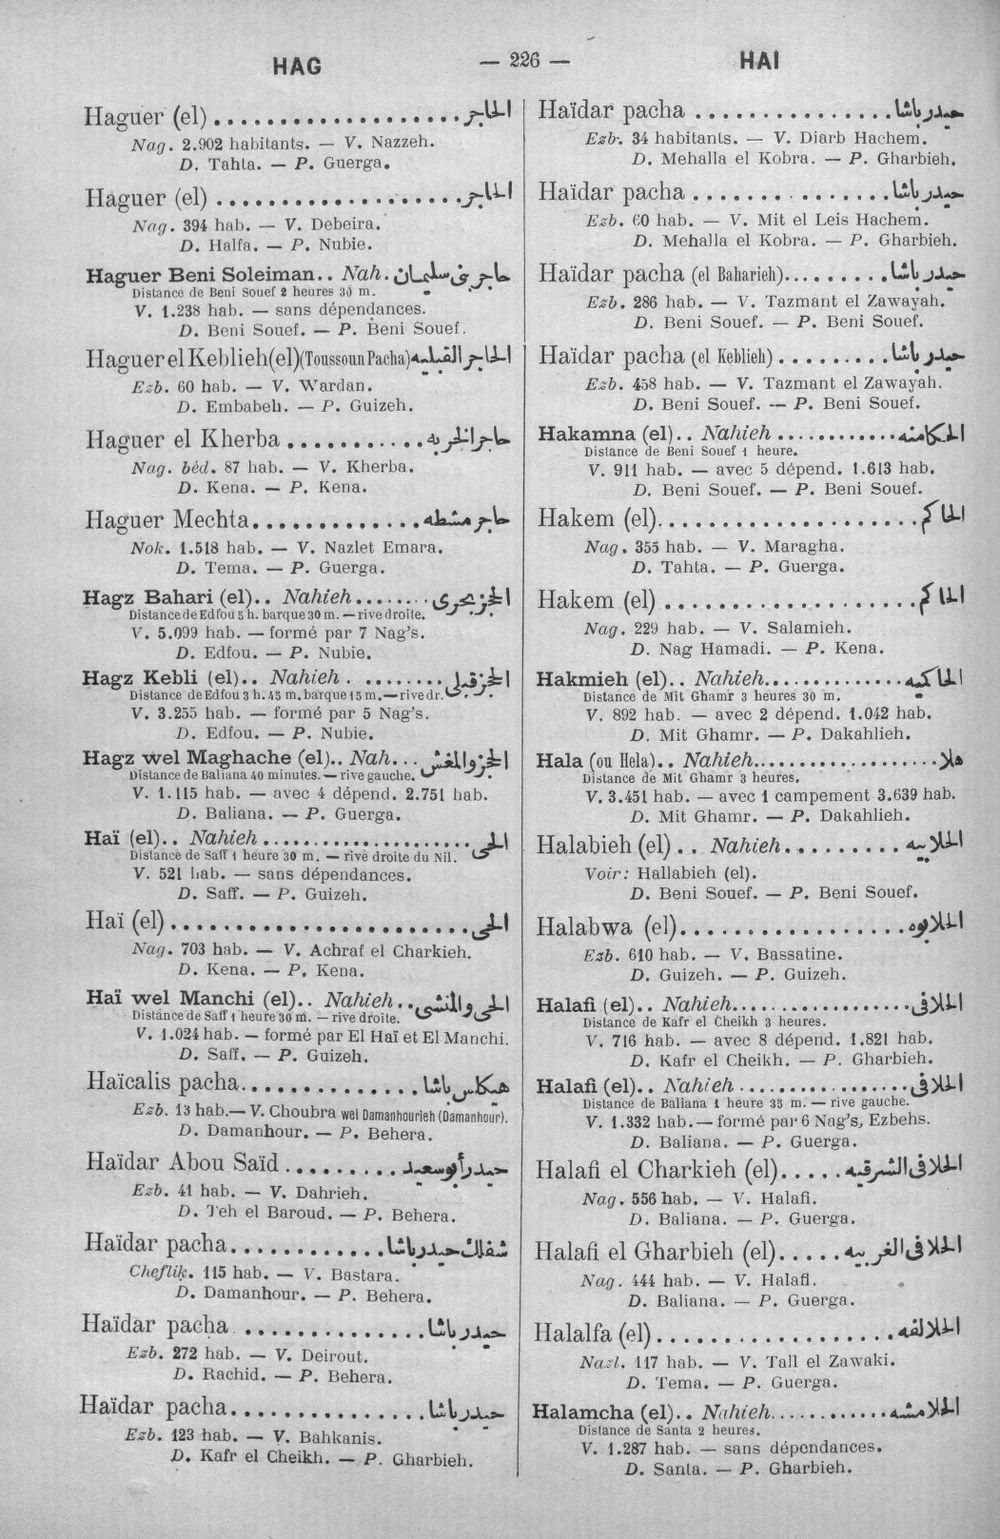 HAG — 226 — HAI
Haguer (el) ................... الحاجر
Nag. 2.902 habitants. — V. Nazzeh.
D. Tahta. — P. Guerga.
Haguer (el) ................... الحاجر
Nag. 394 hab. — V. Debeira.
D. Halfa. — P. Nubie.
Haguer Beni Soleiman.. Nah. حاجر بنى سليمان
Distance de Beni Souef 2 heures 30 m.
V. 1.238 hab. — sans dépendances.
D. Beni Souef. — P. Beni Souef.
Haguer el Keblieh (el) (Toussoun Pacha) الحاجر القبليه
Ezb. 60 hab. — V. Wardan.
D. Embabeh. — P. Guizeh.
Haguer el Kherba ........... حاجر الخربه
Nag. béd. 87 hab. — V. Kherba.
D. Kena. — P. Kena.
Haguer Mechta............. حاجر مشطه
Nok. 1.518 hab. — V. Nazlet Emara.
D. Tema. — P. Guerga.
Hagz Bahari (el).. Nahieh ........ الحجز بحرى
Distance de Edfou 5 h. barque 30 m. — rive droite.
V. 5.099 hab. — formé par 7 Nag's.
D. Edfou. — P. Nubie.
Hagz Kebli (el).. Nahieh . ........ الحجز قبلى
Distance de Edfou 3 h. 45 m. barque 15 m. — rive dr.
V. 3.255 hab. — formé par 5 Nag's.
D. Edfou. — P. Nubie.
Hagz wel Maghache (el).. Nah... الحجز والمغش
Distance de Baliana 40 minutes. — rive gauche.
V. 1.115 hab. — avec 4 dépend. 2.751 hab.
D. Baliana. — P. Guerga.
Haï (el).. Nahieh ..................... الحى
Distance de Saff 1 heure 30 m. — rive droite du Nil.
V. 521 hab. — sans dépendances.
D. Saff. — P. Guizeh.
Haï (el) ....................... الحى
Nag. 703 hab. — V. Achraf el Charkieh.
D. Kena. — P. Kena.
Haï wel Manchi (el).. Nahieh .. الحى والمنشى
Distance de Saff 1 heure 30 m. — rive droite.
V. 1.024 hab. — formé par El Haï et El Manchi.
D. Saff. — P. Guizeh.
Haïcalis pacha............. هيكلس باشا
Ezb. 13 hab. — V. Choubra wel Damanhourieh (Damanhour).
D. Damanhour. — P. Behera.
Haïdar Abou Saïd ......... حيدر أبو سعيد
Ezb. 41 hab. — V. Dahrieh.
D. Teh el Baroud. — P. Behera.
Haïdar pacha............ شفلك حيدر باشا
Cheflik. 115 hab. — V. Bastara.
D. Damanhour. — P. Behera.
Haïdar pacha .............. حيدر باشا
Ezb. 272 hab. — V. Deirout.
D. Rachid. — P. Behera.
Haïdar pacha............... حيدر باشا
Ezb. 123 hab. — V. Bahkanis.
D. Kafr el Cheikh. — P. Gharbieh.
Haïdar pacha ............... حيدر باشا
Ezb. 34 habitants. — V. Diarb Hachem.
D. Mehalla el Kobra. — P. Gharbieh.
Haïdar pacha ............... حيدر باشا
Ezb. 60 hab. — V. Mit el Leis Hachem.
D. Mehalla el Kobra. — P. Gharbieh.
Haïdar pacha (el Baharieh)........ حيدر باشا
Ezb. 286 hab. — V. Tazmant el Zawayah.
D. Beni Souef. — P. Beni Souef.
Haïdar pacha (el Keblieh) ........ حيدر باشا
Ezb. 458 hab. — V. Tazmant el Zawayah.
D. Beni Souef. — P. Beni Souef.
Hakamna (el).. Nahieh ............ الحكامنه
Distance de Beni Souef 1 heure.
V. 911 hab. — avec 5 dépend. 1.613 hab.
D. Beni Souef. — P. Beni Souef.
Hakem (el).................... الحاكم
Nag. 355 hab. — V. Maragha.
D. Tahta. — P. Guerga.
Hakem (el) ................... الحاكم
Nag. 229 hab. — V. Salamieh.
D. Nag Hamadi. — P. Kena.
Hakmieh (el).. Nahieh.............. الحاكميه
Distance de Mit Ghamr 3 heures 30 m.
V. 892 hab. — avec 2 dépend. 1.042 hab.
D. Mit Ghamr. — P. Dakahlieh.
Hala (ou Hela).. Nahieh.................. هلا
Distance de Mit Ghamr 3 heures.
V. 3.451 hab. — avec 1 campement 3.639 hab.
D. Mit Ghamr. — P. Dakahlieh.
Halabieh (el) .. Nahieh......... الحلابيه
Voir: Hallabieh (el).
D. Beni Souef. — P. Beni Souef.
Halabwa (el).................. الحلابوه
Ezb. 610 hab. — V. Bassatine.
D. Guizeh. — P. Guizeh.
Halafi (el).. Nahieh................... الحلافى
Distance de Kafr el Cheikh 3 heures.
V. 716 hab. — avec 8 dépend. 1.821 hab.
D. Kafr el Cheikh. — P. Gharbieh.
Halafi (el).. Nahieh ................. الحلافى
Distance de Baliana 1 heure 35 m. — rive gauche.
V. 1.332 hab. — formé par 6 Nag's, Ezbehs.
D. Baliana. — P. Guerga.
Halafi el Charkieh (el)..... الحلافى الشرقيه
Nag. 556 hab. — V. Halafi.
D. Baliana. — P. Guerga.
Halafi el Gharbieh (el)..... الحلافى الغربيه
Nag. 444 hab. — V. Halafi.
D. Baliana. — P. Guerga.
Halalfa (el)................... الحلالفه
Nazl. 117 hab. — V. Tall el Zawaki.
D. Tema. — P. Guerga.
Halamcha (el).. Nahieh............ الحلامشه
Distance de Santa 2 heures.
V. 1.287 hab. — sans dépendances.
D. Santa. — P. Gharbieh.